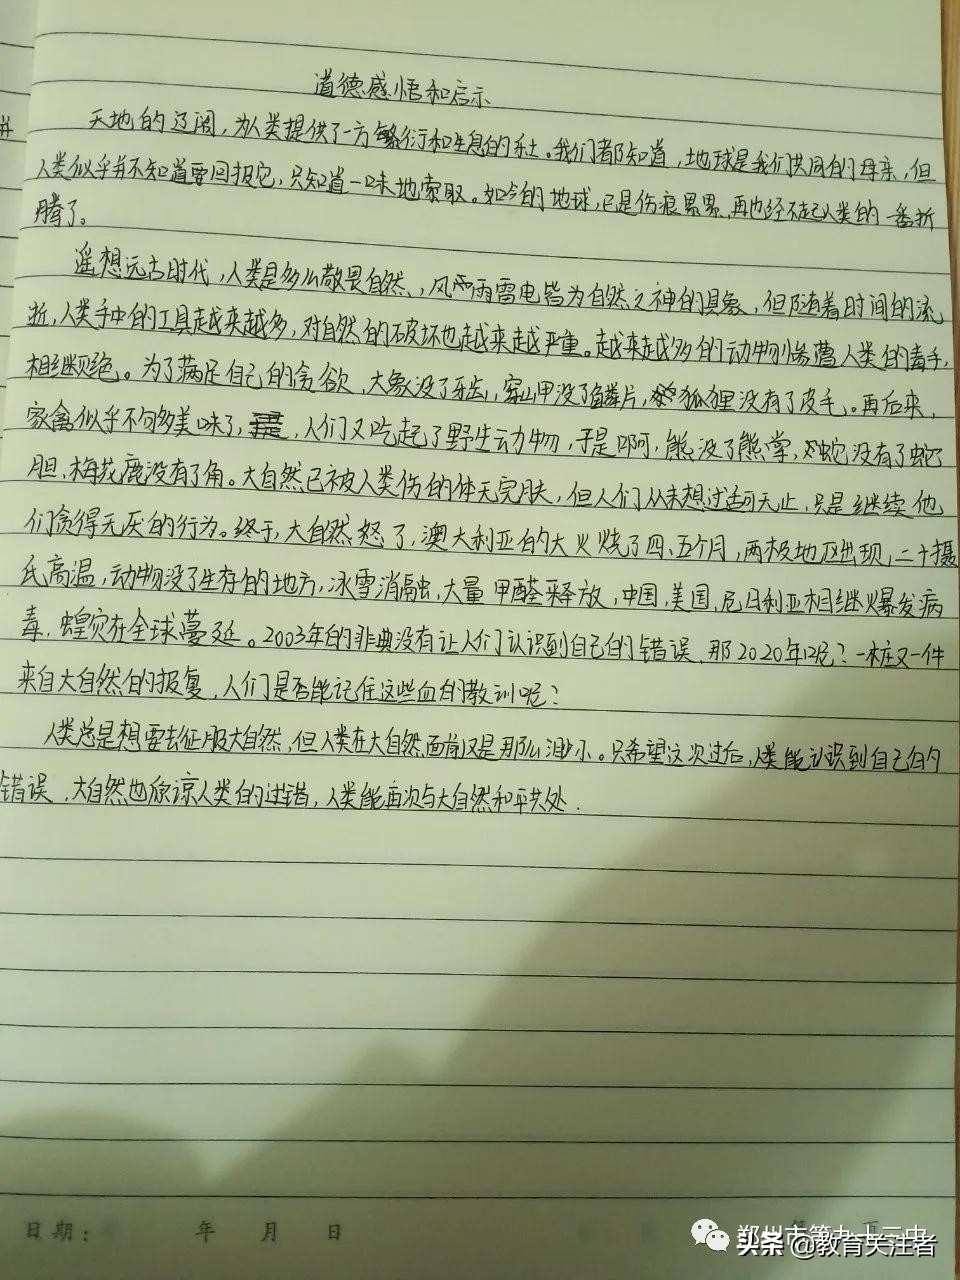 道德感悟和启示
天地的辽阔，为人类提供了一方繁衍和生息的乐土。我们都知道，地球是我们共同的母亲，但
人类似乎并不知道要回报它，只知道一味地索取。如今的地球，已是伤痕累累，再也经不起人类的一番折
腾了。
遥想远古时代，人类是多么敬畏自然，风雨雷电皆为自然之神的具象，但随着时间的流
逝，人类手中的工具越来越多，对自然的破坏也越来越严重。越来越多的动物惨遭人类的毒手，
相继灭绝。为了满足自己的贪欲，大象没了牙齿，穿山甲没了鳞片，狐狸没有了皮毛。再后来，
家禽似乎不够美味了，人们又吃起了野生动物，于是啊，熊没了熊掌，蛇没有了蛇
胆，梅花鹿没有了角。大自然已被人类伤的体无完肤，但人们从未想过适可而止，只是继续他
们贪得无厌的行为。终于，大自然怒了，澳大利亚的大火烧了四、五个月，两极地区出现二十摄
氏高温，动物没了生存的地方，冰雪消融，大量甲醛释放，中国，美国，尼日利亚相继爆发病
毒，蝗灾在全球蔓延。2003年的非典没有让人们认识到自己的错误，那2020年呢？一桩又一件
来自大自然的报复，人们是否能记住这些血的教训呢？
人类总是想要去征服大自然，但人类在大自然面前又是那么渺小。只希望这次过后，人类能认识到自己的
错误，大自然也原谅人类的过错，人类能再次与大自然和平共处．
日期： 年 月 日
郑州市第九十三中
头条 @教育关注者